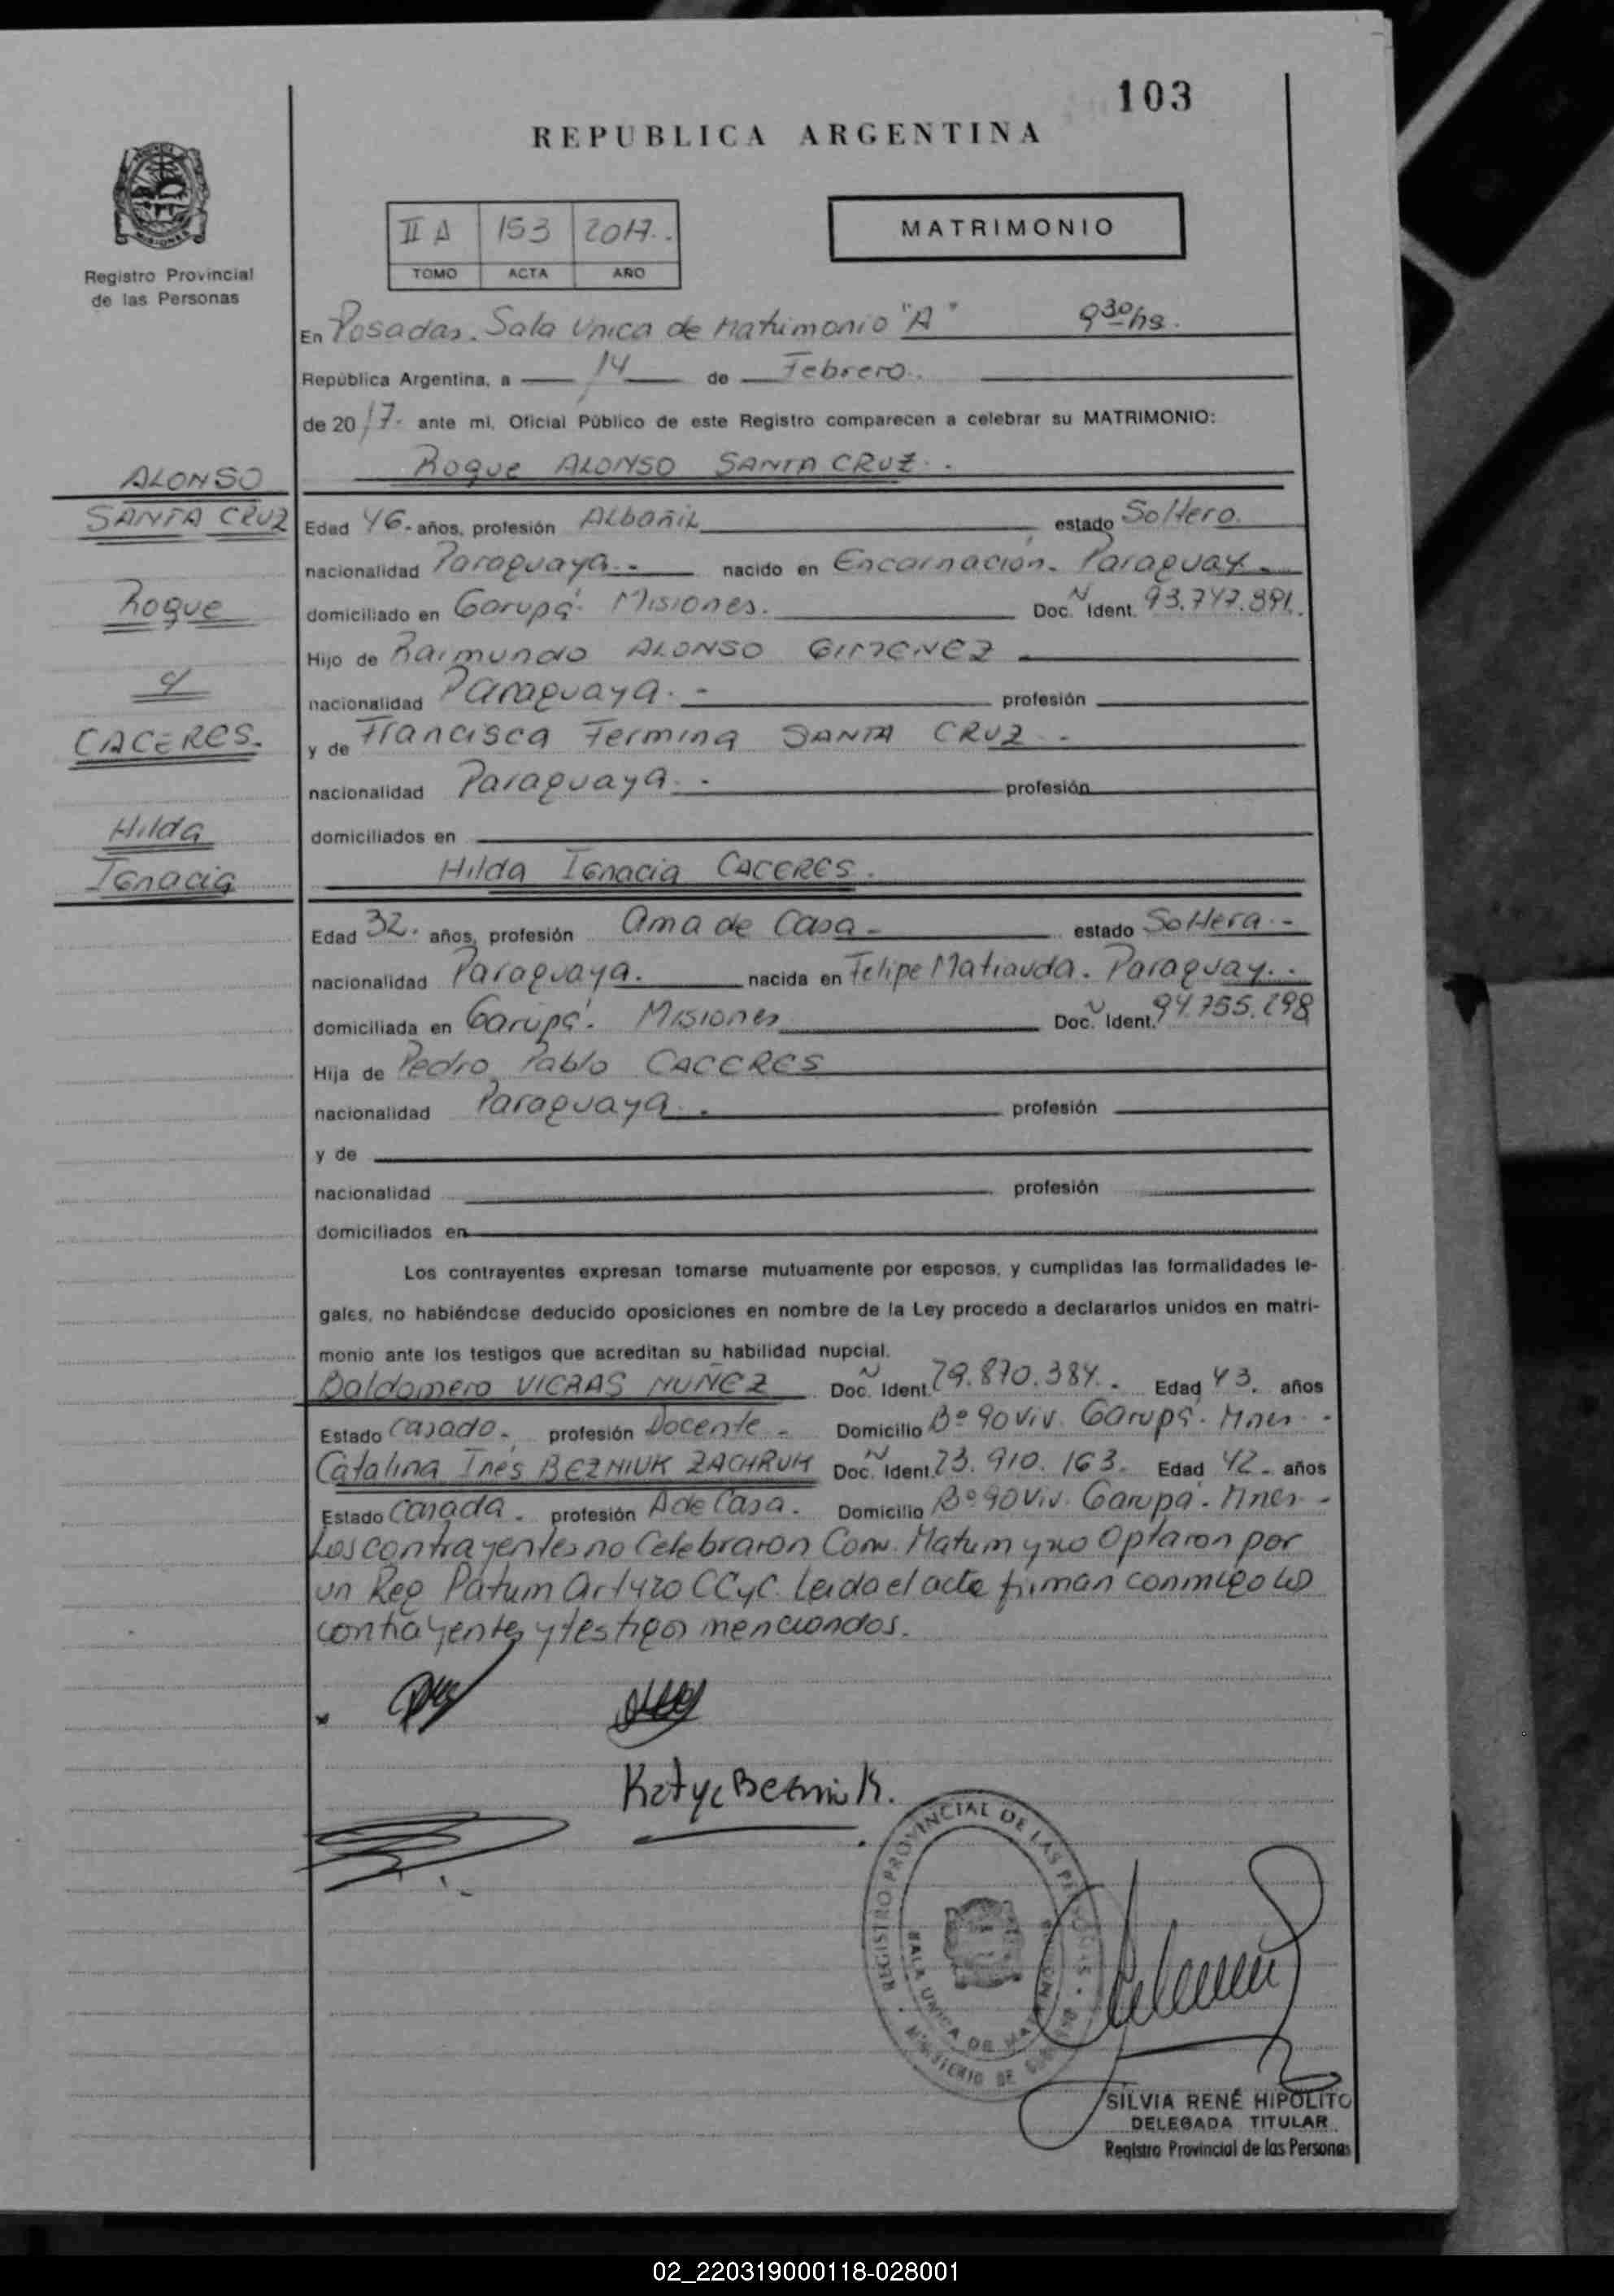 103
REPUBLICA ARGENTINA
Registro Provincial
de las Personas
II A 153 2017.
TOMO ACTA AÑO
MATRIMONIO
En Posadas. Sala Unica de Matrimonio "A" 9 30 hs.
República Argentina, a 14 de Febrero.
de 2017. ante mi, Oficial Público de este Registro comparecen a celebrar su MATRIMONIO:
Roque ALONSO SANTA CRUZ.
ALONSO
SANTA CRUZ
Roque
y
CACERES.
Hilda
Ignacia
Edad 46. años, profesión Albañil estado Soltero.
nacionalidad Paraguaya. nacido en Encarnación. Paraguay.
domiciliado en Garupá. Misiones. Doc. N Ident. 93.747.891.
Hijo de Raimundo ALONSO GIMENEZ
nacionalidad Paraguaya. profesión
y de Francisca Fermina SANTA CRUZ.
nacionalidad Paraguaya. profesión
domiciliados en
Hilda Ignacia CACERES.
Edad 32. años, profesión Ama de Casa estado Soltera.
nacionalidad Paraguaya. nacida en Felipe Matiauda. Paraguay.
domiciliada en Garupá. Misiones Doc. N Ident. 94.755.298
Hija de Pedro Pablo CACERES
nacionalidad Paraguaya. profesión
y de
nacionalidad profesión
domiciliados en
Los contrayentes expresan tomarse mutuamente por esposos, y cumplidas las formalidades le-
gales, no habiéndose deducido oposiciones en nombre de la Ley procedo a declararlos unidos en matri-
monio ante los testigos que acreditan su habilidad nupcial.
Baldomero VIERAS NUÑEZ Doc. N Ident. 29.870.384. Edad 43. años
Estado Casado. profesión Docente Domicilio Bº 90 Viv. Garupá. Mnes.
Catalina Ines BEZNIUK ZACHRUK Doc. N Ident. 23.910.163. Edad 42. años
Estado Casada. profesión A de Casa. Domicilio Bº 90 Viv. Garupá. Mnes.
Los contrayentes no Celebraron Conv. Matrim y no Optaron por
un Reg Patrim Art 420 CCyC. Leida el acta firman conmigo los
contrayentes y testigos mencionados.
Katya Bezniuk.
REGISTRO PROVINCIAL DE LAS PERSONAS
SALA UNICA DE MATRIMONIO
MINISTERIO DE GOBIERNO
SILVIA RENÉ HIPOLITO
DELEGADA TITULAR
Registro Provincial de las Personas
02_220319000118-028001